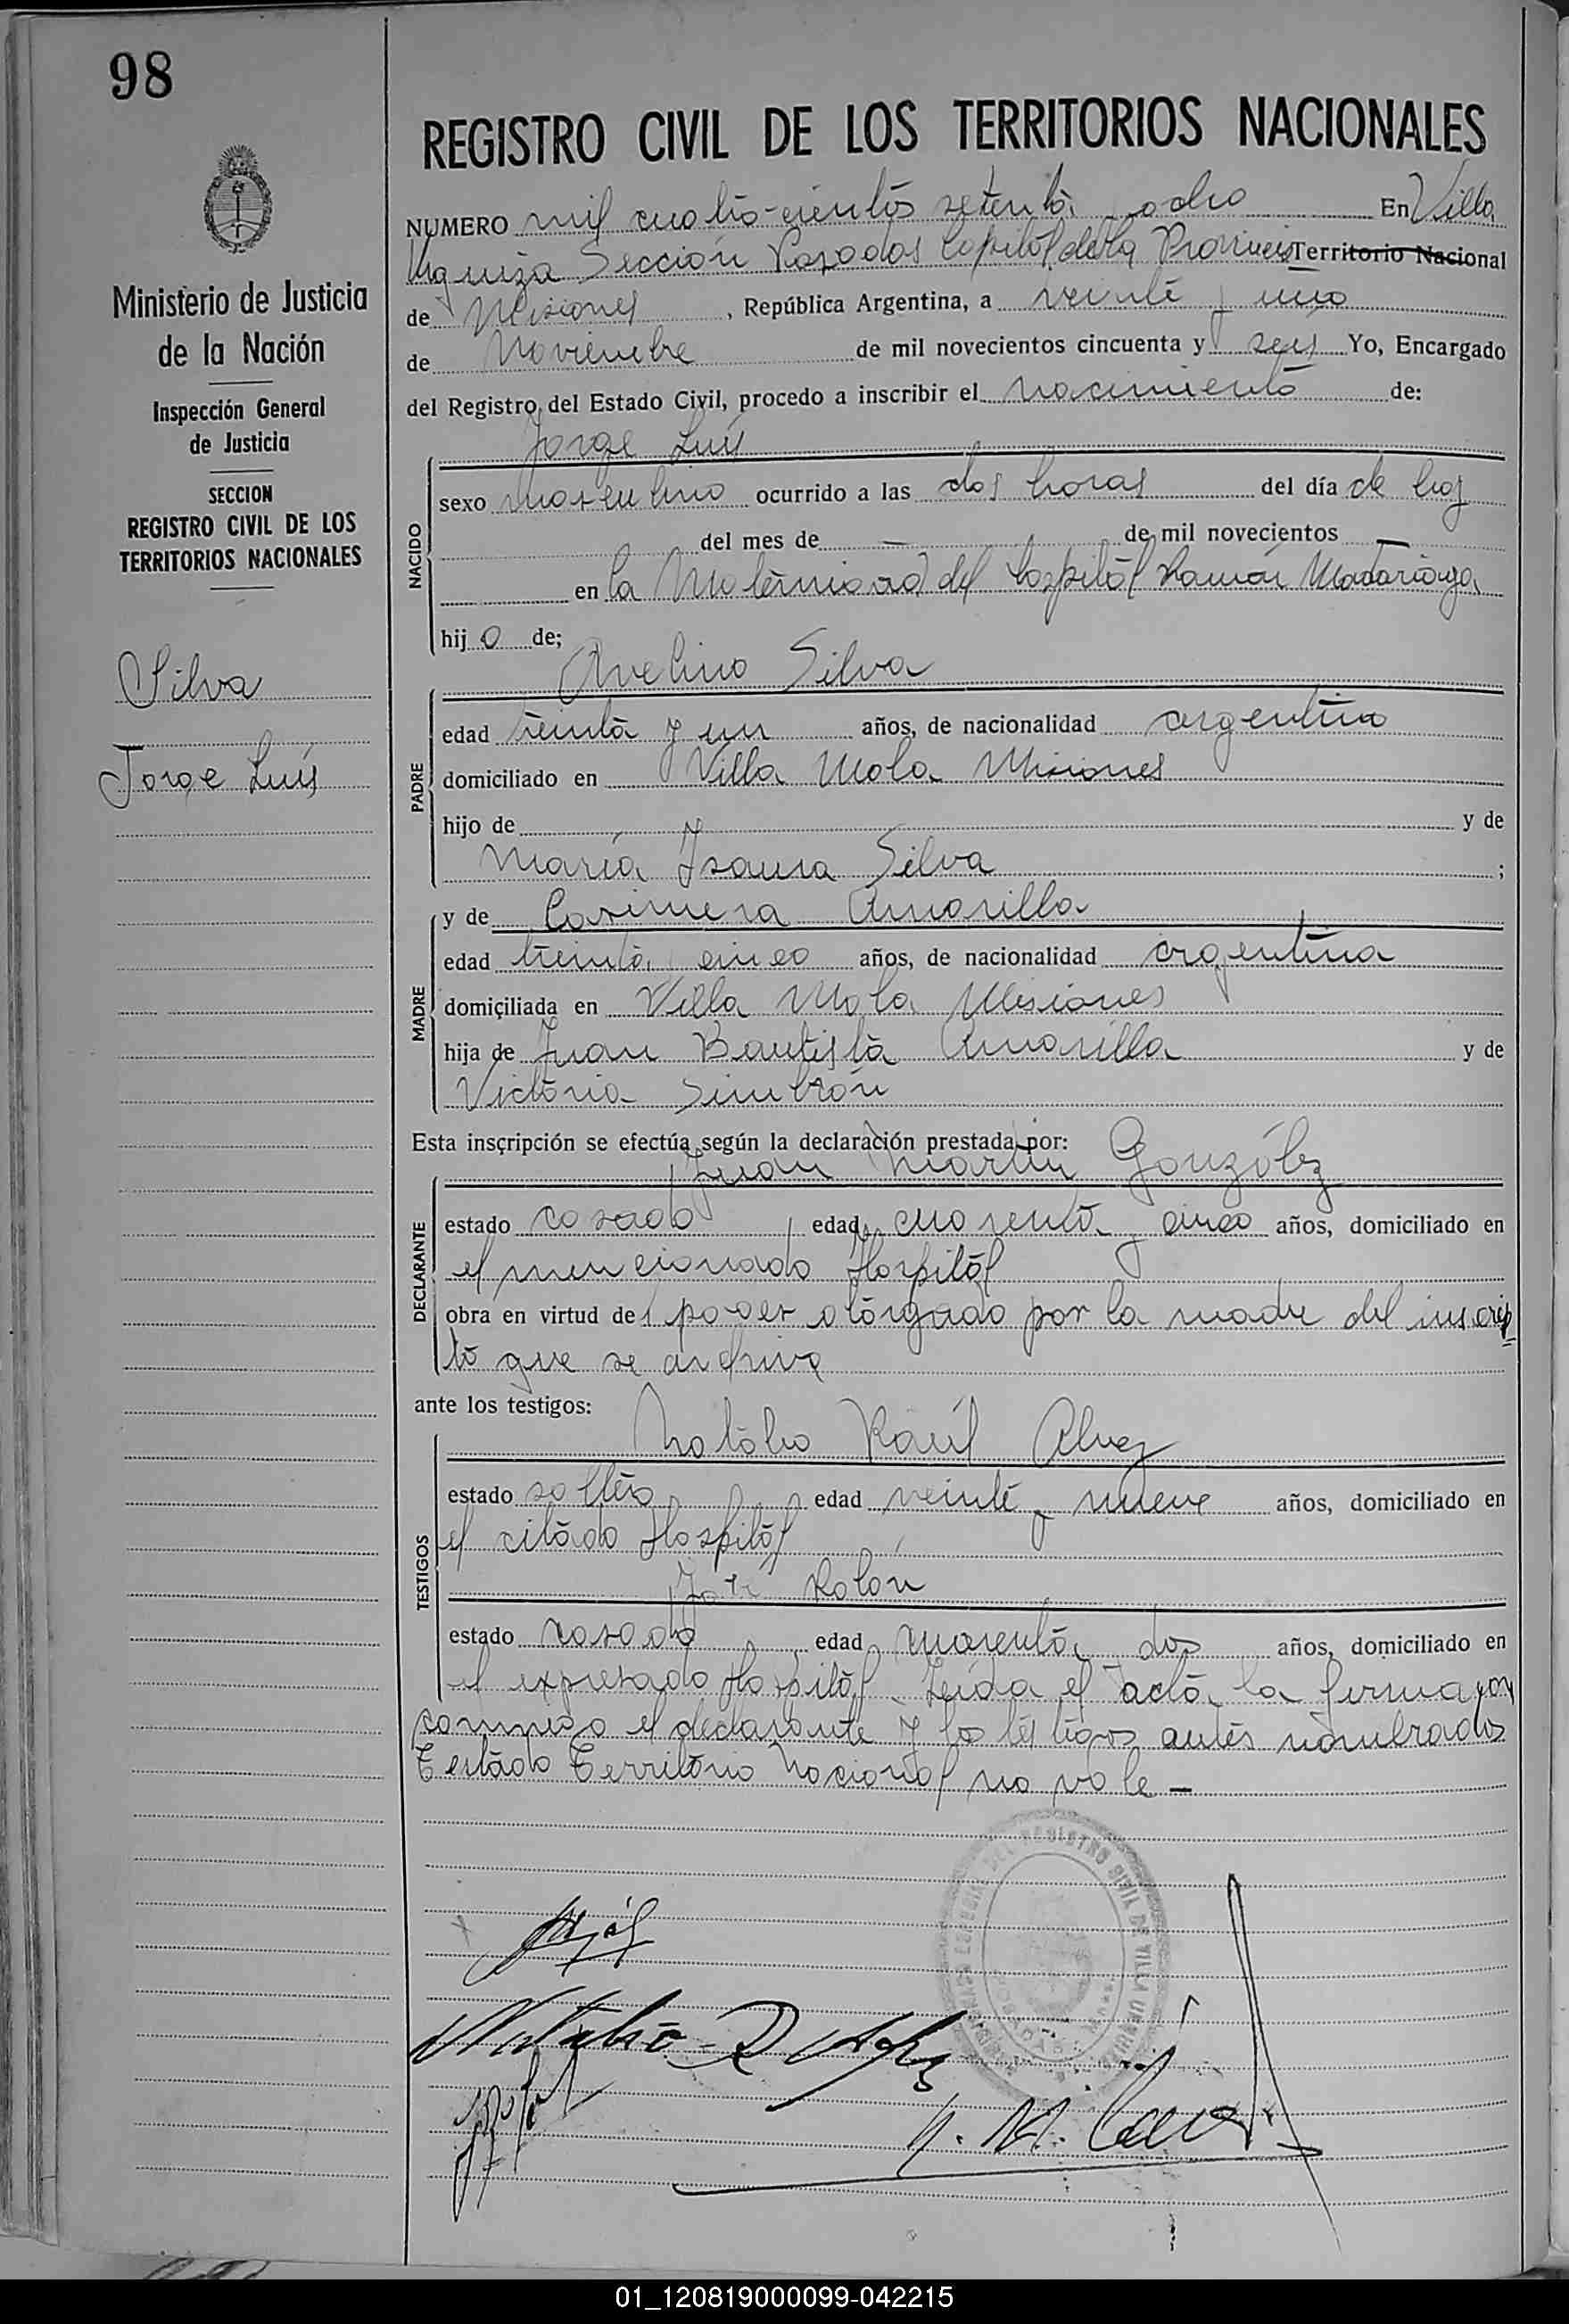 98
REGISTRO CIVIL DE LOS TERRITORIOS NACIONALES
Ministerio de Justicia
de la Nación
Inspección General
de Justicia
SECCION
REGISTRO CIVIL DE LOS
TERRITORIOS NACIONALES
Silva
Jorge Luís
NUMERO mil cuatrocientos setenta y ocho En Villa
Urquiza Sección Posadas Capital de la Provincia Territorio Nacional
de Misiones, República Argentina, a veinte y uno
de Noviembre de mil novecientos cincuenta y seis Yo, Encargado
del Registro del Estado Civil, procedo a inscribir el nacimiento de:
Jorge Luís
NACIDO
sexo masculino ocurrido a las dos horas del día de hoy
del mes de — de mil novecientos —
en la Maternidad del Hospital Ramón Madariaga
hijo de;
Avelino Silva
PADRE
edad treinta y un años, de nacionalidad argentina
domiciliado en Villa Mola Misiones
hijo de y de
María Isaura Silva ;
y de Casimera Amarilla
MADRE
edad treinta cinco años, de nacionalidad argentina
domiciliada en Villa Mola Misiones
hija de Juan Bautista Amarilla y de
Victoria Simbrón
Esta inscripción se efectúa según la declaración prestada por:
Juan Martín González
DECLARANTE
estado casado edad cuarenta y cinco años, domiciliado en
el mencionado Hospital
obra en virtud de poder otorgado por la madre del inscrip
to que se archiva
ante los testigos:
Natalio Raúl Alvez
TESTIGOS
estado soltero edad veinte y nueve años, domiciliado en
el citado Hospital
José Rolón
estado casado edad cuarenta dos años, domiciliado en
el expresado Hospital. Leída el acta, la firmaron
conmigo el declarante y los testigos antes nombrados
Testado Territorio Nacional no vale —
REGISTRO CIVIL DE VILLA URQUIZA
01_120819000099-042215